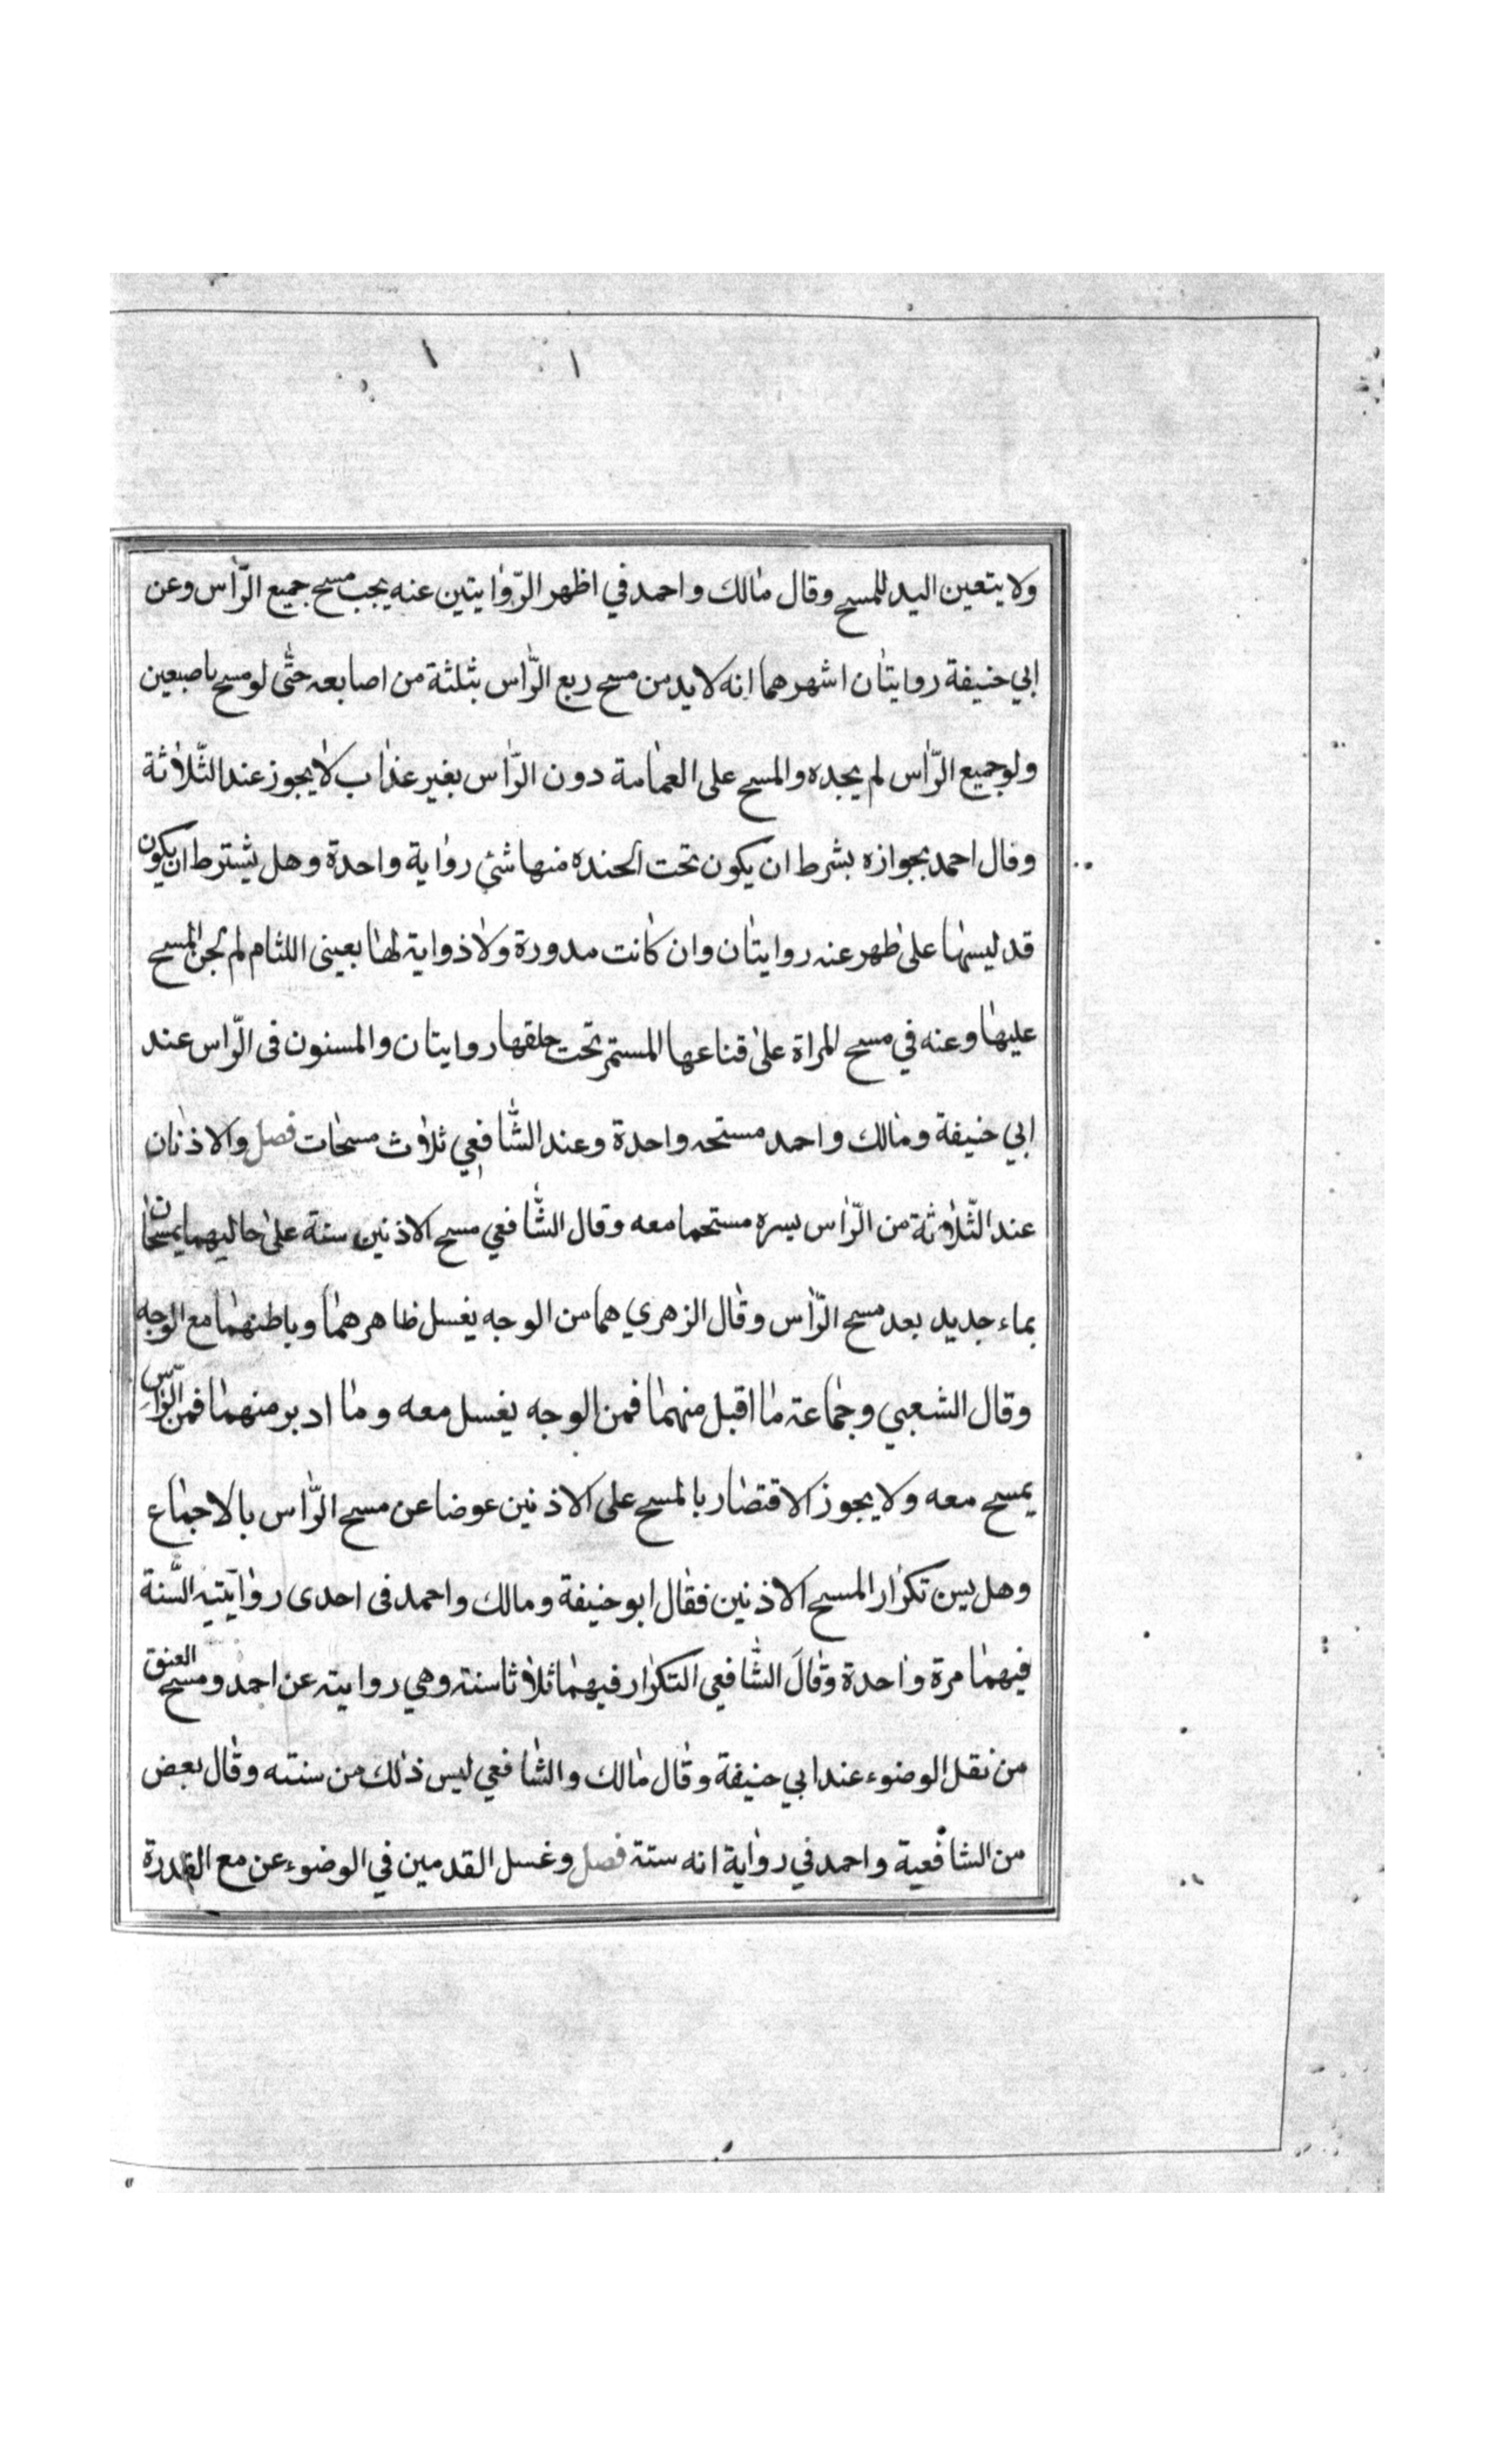 ولا يتعين اليد للمسح وقال مالك واحمد في اظهر الرّوايتين عنه يجب مسح جميع الرّاس وعن
ابي حنيفة روايتان اشهرهما انه لا بد من مسح ربع الرّاس بثلثة من اصابعه حتّى لو مسح باصبعين
ولو جميع الرّاس لم يجده والمسح على العمامة دون الرّاس بغير عذاب لا يجوز عند الثّلاثة
وقال احمد بجوازه بشرط ان يكون تحت الحنده منها شئ رواية واحدة وهل يشترط ان يكون
قد لبسها على طهر عنه روايتان وان كانت مدورة ولا ذواية لها بعينى اللثام لم يجز المسح
عليها وعنه في مسح المراة على قناعها المستمر تحت حلقها روايتان والمسنون فى الرّاس عند
ابي حنيفة ومالك واحمد مستحه واحدة وعند الشّافعي ثلاث مسحات فصل والاذنان
عند الثّلاثة من الرّاس يسره مستحما معه وقال الشّافعي مسح الاذنين سنة على حاليهما يمسحان
بماء جديد بعد مسح الرّاس وقال الزهري هما من الوجه يغسل ظاهرهما وباطنهما مع الوجه
وقال الشعبي وجماعة ما اقبل منهما فمن الوجه يغسل معه وما ادبر منهما فمن الرّاس
يمسح معه ولا يجوز الاقتصار بالمسح على الاذنين عوضا عن مسح الرّاس بالاجماع
وهل يسن تكرار المسح الاذنين فقال ابو حنيفة ومالك واحمد فى احدى روايتيه السّنة
فيهما مرة واحدة وقالَ الشّافعي التكرار فيهما ثلاثا سنة وهي روايته عن احمد ومسح العنق
من نقل الوضوء عند ابي حنيفة وقال مالك والشافعي ليس ذلك من سنته وقال بعض
من الشافعية واحمد في رواية انه سنة فصل وغسل القدمين في الوضوء عن مع القدرة